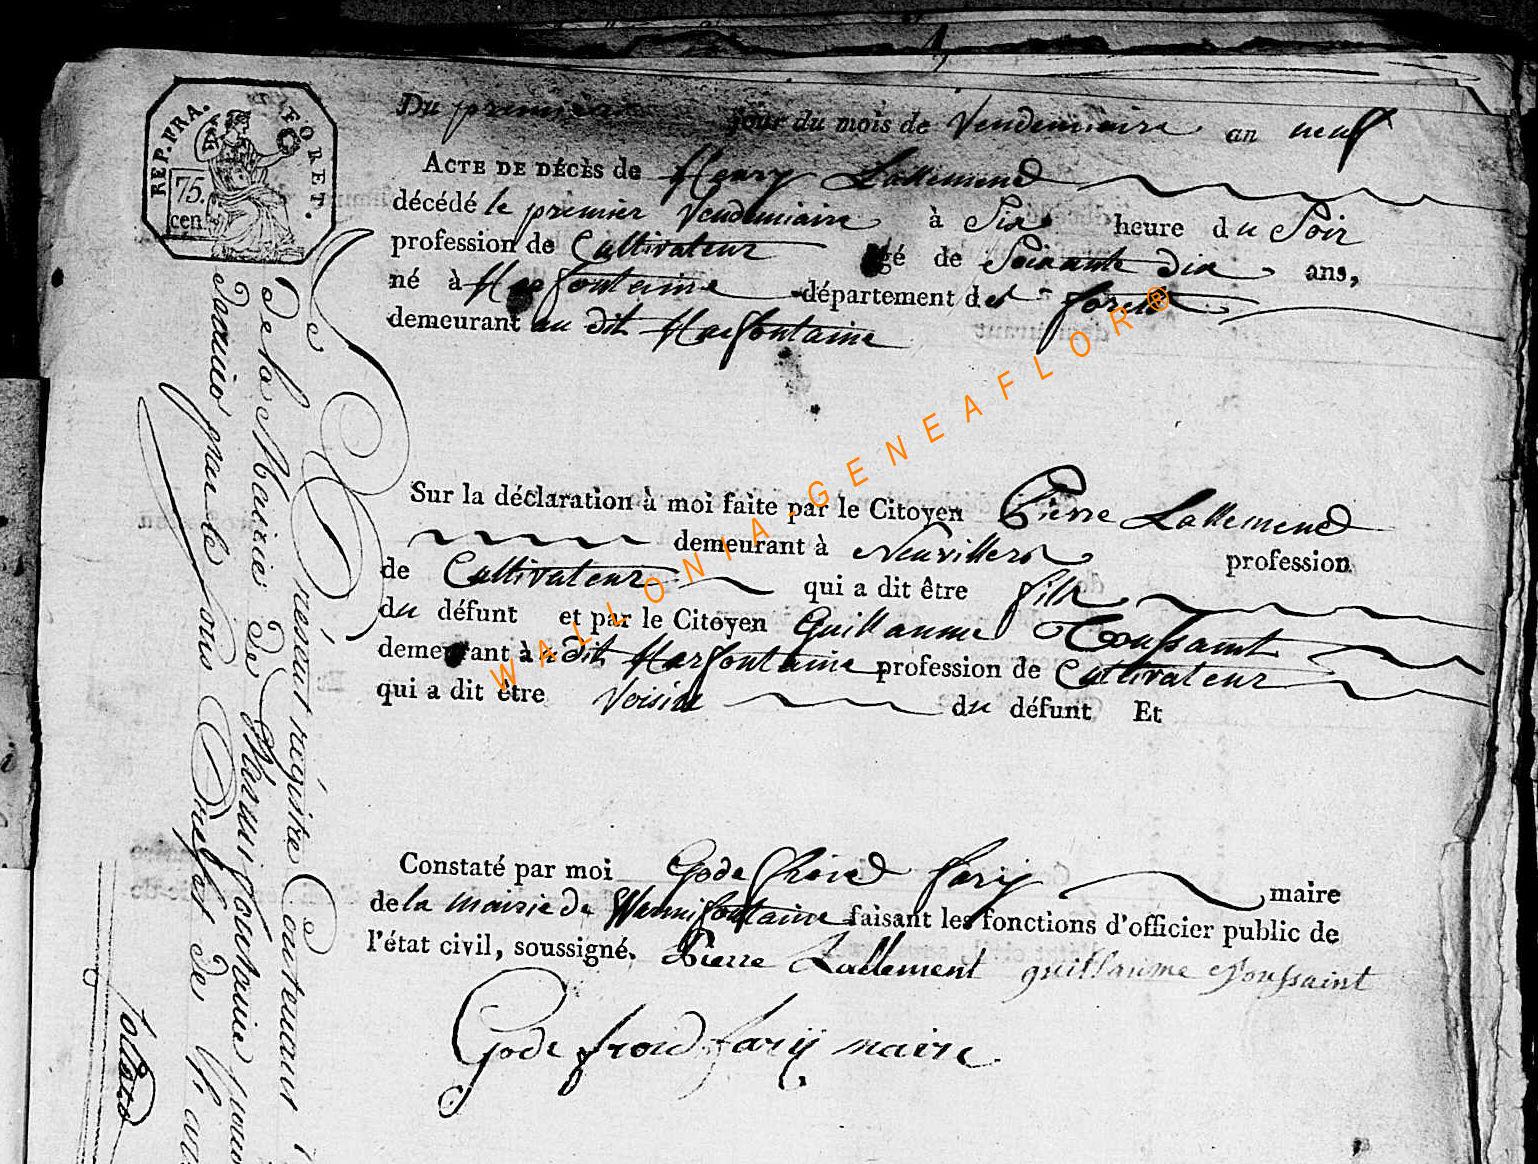 Du premier jour du mois de Vendemiaire an neuf
ACTE DE DÉCÈS de Henry Lallemend
décédé le premier Vendemiaire à Six heure du Soir
profession de Cultivateur agé de Soixante dix ans,
né à Harfontaine département des forets
demeurant au dit Harfontaine
Sur la déclaration à moi faite par le Citoyen Pierre Lallemend
demeurant à Neuvillers profession
de Cultivateur qui a dit être fils
du défunt et par le Citoyen Guillaume Toussaint
demeurant à dit Harfontaine profession de Cultivateur
qui a dit être Voisin du défunt Et
Constaté par moi Godefroid fary maire
de la mairie de Hamifontaine faisant les fonctions d'officier public de
l'état civil, soussigné. Pierre Lallement guillaume Toussaint
Godefroid fary maire
REP. FRA. FORET.
75.
cen
Le Présent régistre Contenant
De la Mairie de
par le Sous Prefet de
WALLONIA-GENEAFLOR®